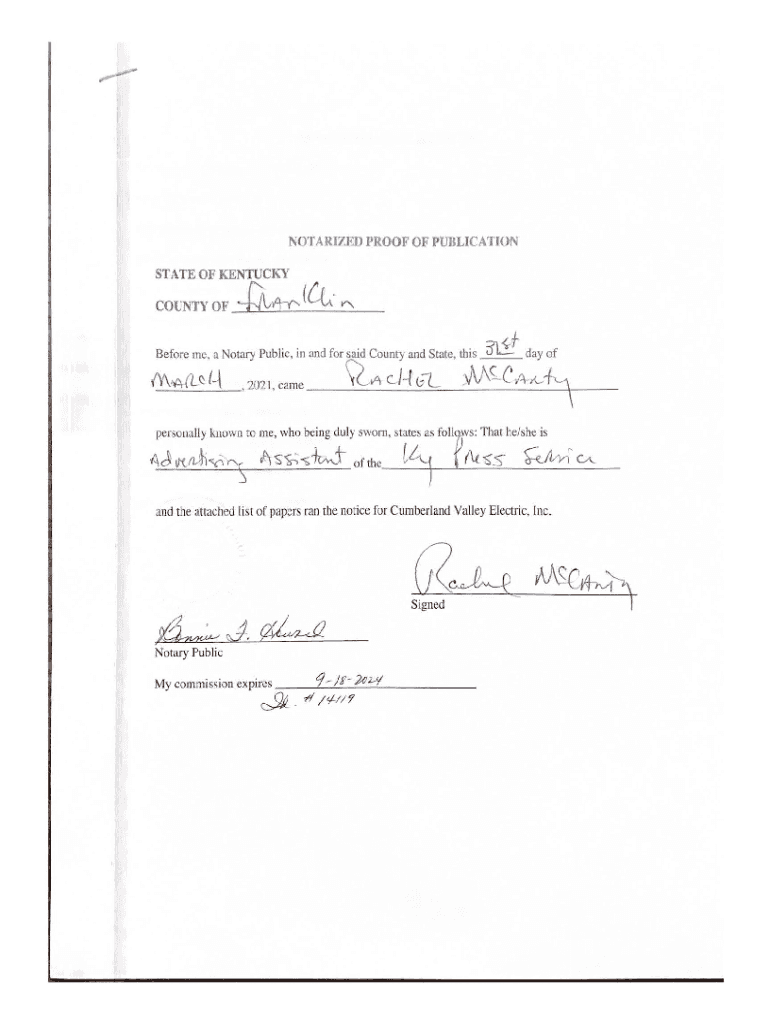 NOTARIZED PROOF OF PUBLICATION
STATE OF KENTUCKY
COUNTY OF Franklin
Before me, a Notary Public, in and for said County and State, this 31st day of
MARCH, 2021, came RACHEL McCarty
personally known to me, who being duly sworn, states as follows: That he/she is
Advertising Assistant of the Ky Press Service
and the attached list of papers ran the notice for Cumberland Valley Electric, Inc.
Rachel McCarty
Signed
Bonnie J.
Notary Public
My commission expires 9-18-2024
Id. # 14119